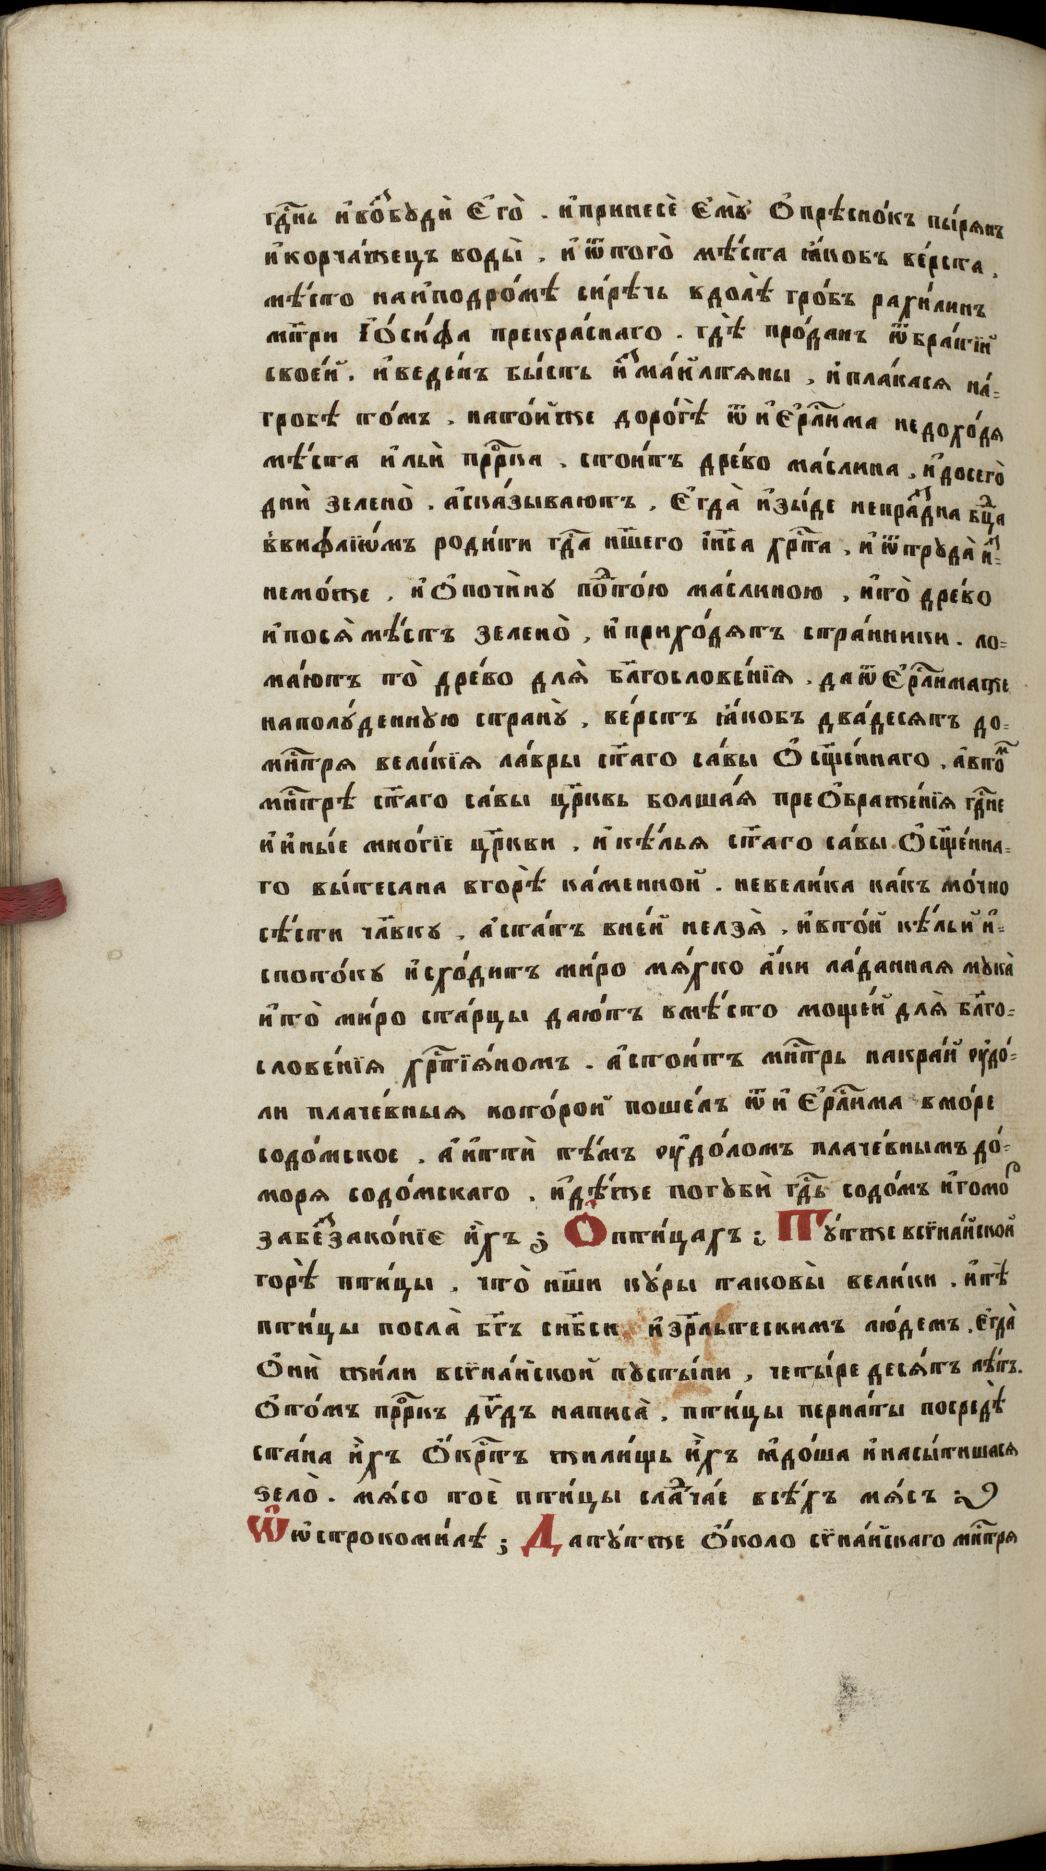 гдⷭ҇нь и҆воⷥбꙋди̇̀ є҆го̀ . и҆принесѐ є҆мꙋ̀ ѻ҆прѣсно́къ пы́рянъ
и҆корча́жецъ воды̀ . и҆ ѿтого̀ мѣ́ста ꙗ҆́кобъ ве́рста ,
мѣ́сто наи҆подро́мѣ си́рѣчь вдо́лѣ гро́бъ рахи́линъ
мт҃ри і҆ѻ́сифа прекра́снаго . гдѣ̀ про́данъ ѿбра́тїй
свое́й . и҆веде́нъ бы́сть и҆ⷥма́илтяны , и҆пла́кася на́-
гробѣ то́мъ . нато́йже доро́гѣ ѿ и҆є҆рⷭ҇ли́ма недоходя́
мѣ́ста и҆льи̇̀ прⷪ҇рка . стои́тъ дре́во ма́слина , и҆досего̀
дни̇̀ зелено̀ . а҆ска́зываютъ , є҆гда̀ и҆зы́де непраⷥ҇дна бцⷣа
в̾вифлїѡ́мъ роди́ти гдⷭ҇а нш҃его і҆и҃са хрⷭ҇та , и҆ ѿтрꙋда̀ и҆ⷥ-
немо́же , и҆ ѻ҆почи́нꙋ поⷣ҇то́ю ма́слиною , и҆то̀ дре́во
и҆пося̀ мѣ́стъ зелено̀ , и҆прихо́дятъ стра́нники . ло-
ма́ютъ то̀ дре́во для̀ бл҃гослове́нїя . да ѿ є҆рⷭ҇ли́маже
наполꙋ́деннꙋю странꙋ̀ , ве́рстъ ꙗ҆́кобъ два́десятъ до-
мнⷭ҇тря вели́кїя ла́вры ст҃аго са́вы ѻ҆сщ҃е́ннаго . а҆втоⷨ
мнⷭ҇трѣ ст҃аго са́вы цр҃ковь болша́я преѻбраже́нїя гдⷭ҇не
и҆ и҆ны́е мно́гїе цр҃кви , и҆ кѣ́лья ст҃аго са́вы ѻ҆сщ҃е́нна-
го вы́тесана вгорѣ̀ ка́менной . невели́ка ка́къ мо́чно
сѣ́сти чл҃вкꙋ , а҆ста́тъ вне́й нелзя̀ . и҆вто́й кѣ́льи и҆ⷥ-
спото́кꙋ и҆схо́дитъ ми́ро мя́хко а҆́ки ла́данная мꙋка̀
и҆то̀ ми́ро ста́рцы даю́тъ вмѣ́сто моще́й для̀ бл҃го-
слове́нїя хрⷭ҇тїя́номъ . а҆стои́тъ мнⷭ҇трь накра́й оу҆до́-
ли плаче́вныя кото́рой поше́лъ ѿ и҆ є҆рⷭ҇ли́ма вмо́ре
содо́мское . а҆ и҆тти̇̀ тѣ́мъ оу҆до́ломъ плаче́внымъ до́-
моря содо́мскаго . и҆дѣ́же погꙋби̇̀ гдⷭ҇ь содо́мъ и҆гомоⷬ҇
забеⷥ҇зако́нїе и҆́хъ ; Ѻ҆пти́цахъ : Тꙋ́тже всѵна́йской
горѣ̀ пти́цы . что̀ нш҃и кꙋ́ры таковы̀ вели́ки . и҆тѣ̀
пти́цы посла̀ бг҃ъ снб҃си и҆зрⷭ҇льтескимъ лю́демъ . є҆гда̀
ѻ҆ни̇̀ жи́ли всѵна́йской пꙋсты́ни , четы́редеся́тъ лѣ́тъ.
ѻ҆то́мъ прⷪ҇ркъ дв҃дъ написа̀ . пти́цы перна́ты посредѣ̀
ста́на и҆́хъ ѻ҆́крⷭ҇тъ жили́щь и҆́хъ ꙗ҆до́ша и҆насы́тишася
ѕело̀ . мя́со тоѐ пти́цы слаⷣ҇ча́е всѣ́хъ мя́съ :
Ѡ҆ ѡ҆строкоми́лѣ ; Да тꙋ́тже ѻ҆́коло сѵна́йскаго мнⷭ҇тря